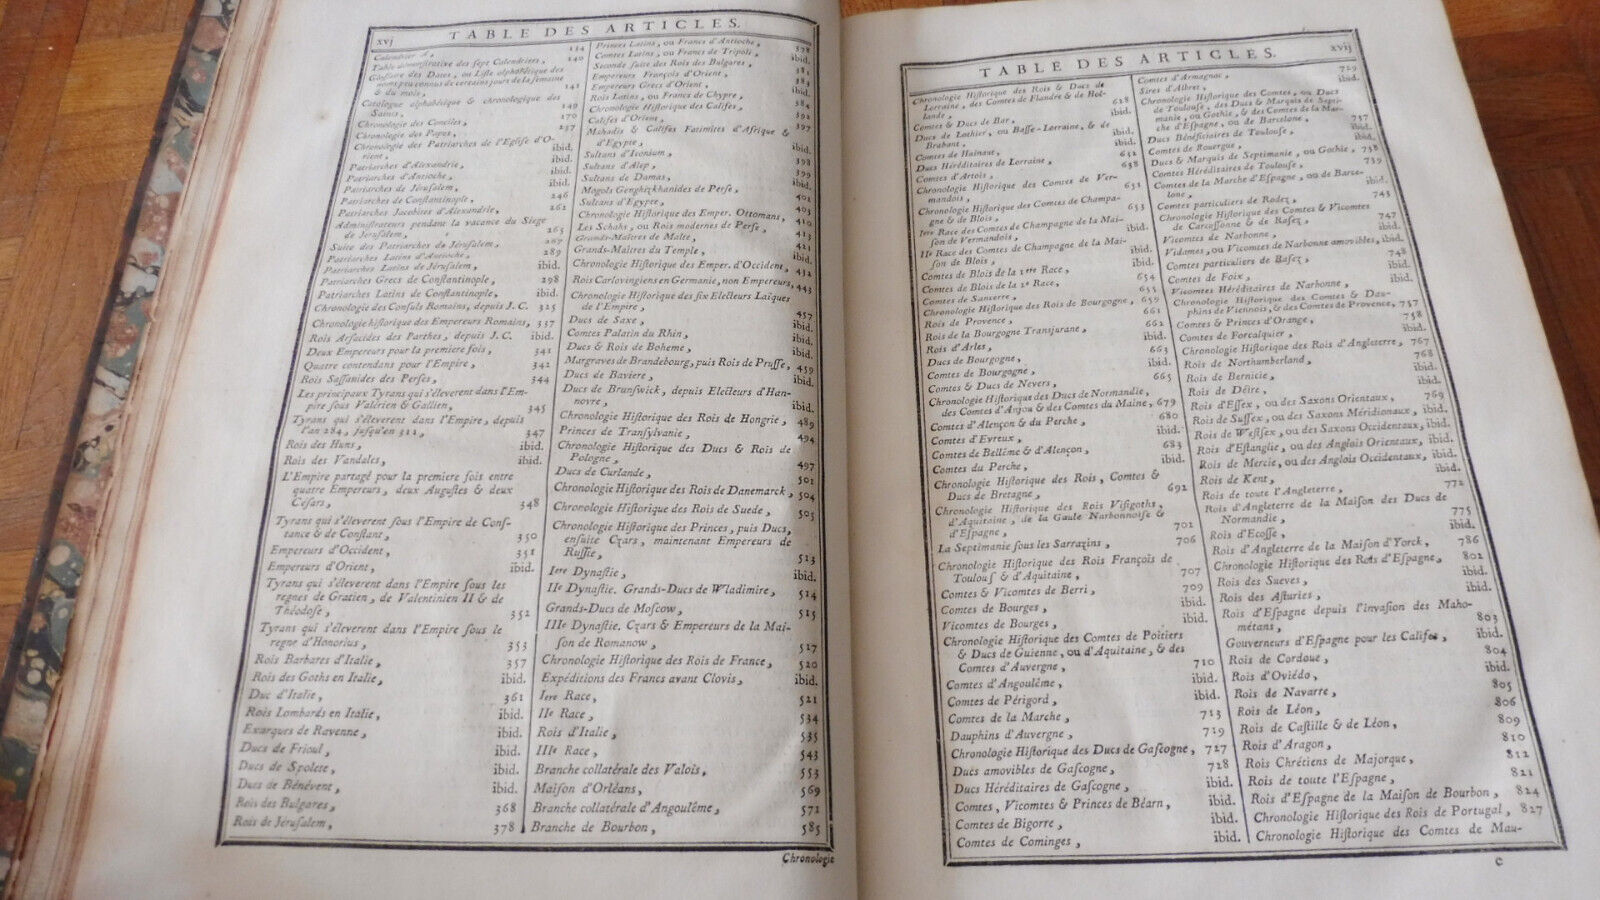 xvj
TABLE DES ARTICLES.
Calendrier A, 134
Table démonstrative des sept Calendriers, 140
Glossaire des Dates, ou Liste alphabétique des
noms peu connus de certains jours de la semaine
& du mois, 141
Catalogue alphabétique & chronologique des
Saints, 149
Chronologie des Conciles, 170
Chronologie des Papes, 237
Chronologie des Patriarches de l'Eglise d'O-
rient, ibid.
Patriarches d'Alexandrie, ibid.
Patriarches d'Antioche, ibid.
Patriarches de Jérusalem, ibid.
Patriarches de Constantinople, 246
Patriarches Jacobites d'Alexandrie, 261
Administrateurs pendant la vacance du Siege
de Jérusalem, 265
Suite des Patriarches de Jérusalem, 287
Patriarches Latins d'Antioche, 289
Patriarches Latins de Jérusalem, ibid.
Patriarches Grecs de Constantinople, 298
Patriarches Latins de Constantinople, ibid.
Chronologie des Consuls Romains, depuis J. C. 325
Chronologie historique des Empereurs Romains, 337
Rois Arsacides des Parthes, depuis J. C. ibid.
Deux Empereurs pour la premiere fois, 341
Quatre contendans pour l'Empire, 342
Rois Sassanides des Perses, 344
Les principaux Tyrans qui s'éleverent dans l'Em-
pire sous Valérien & Gallien, 345
Tyrans qui s'éleverent dans l'Empire, depuis
l'an 284, jusqu'en 311, 347
Rois des Huns, ibid.
Rois des Vandales, ibid.
L'Empire partagé pour la premiere fois entre
quatre Empereurs, deux Augustes & deux
Césars, 348
Tyrans qui s'éleverent sous l'Empire de Cons-
tance & de Constant, 350
Empereurs d'Occident, 351
Empereurs d'Orient, ibid.
Tyrans qui s'éleverent dans l'Empire sous les
regnes de Gratien, de Valentinien II & de
Théodose, 352
Tyrans qui s'éleverent dans l'Empire sous le
regne d'Honorius, 353
Rois Barbares d'Italie, 357
Rois des Goths en Italie, ibid.
Duc d'Italie, 361
Rois Lombards en Italie, ibid.
Exarques de Ravenne, ibid.
Ducs de Frioul, ibid.
Ducs de Spolete, ibid.
Ducs de Bénévent, ibid.
Rois des Bulgares, 368
Rois de Jérusalem, 378
Princes Latins, ou Francs d'Antioche, 378
Comtes Latins, ou Francs de Tripoli, ibid.
Seconde suite des Rois des Bulgares, ibid.
Empereurs François d'Orient, 381
Empereurs Grecs d'Orient, 383
Rois Latins, ou Francs de Chypre, ibid.
Chronologie Historique des Califes, 384
Califes d'Orient, 392
Mahadis & Califes Fatimites d'Afrique &
d'Egypte, 397
Sultans d'Iconium, ibid.
Sultans d'Alep, 398
Sultans de Damas, 399
Mogols Genghizkhanides de Perse, ibid.
Sultans d'Egypte, 402
Chronologie Historique des Emper. Ottomans, 403
Les Schahs, ou Rois modernes de Perse, 410
Grands-Maîtres de Malte, 413
Grands-Maîtres du Temple, 421
Chronologie Historique des Emper. d'Occident, ibid.
Rois Carlovingiens en Germanie, non Empereurs, 432
Chronologie Historique des six Electeurs Laïques 443
de l'Empire, 457
Ducs de Saxe, ibid.
Comtes Palatin du Rhin, ibid.
Ducs & Rois de Boheme, ibid.
Margraves de Brandebourg, puis Rois de Prusse, 459
Ducs de Baviere, ibid.
Ducs de Brunswick, depuis Electeurs d'Han-
novre, ibid.
Chronologie Historique des Rois de Hongrie, 489
Princes de Transylvanie, 494
Chronologie Historique des Ducs & Rois de
Pologne, 497
Ducs de Curlande, 501
Chronologie Historique des Rois de Danemarck, 504
Chronologie Historique des Rois de Suede, 505
Chronologie Historique des Princes, puis Ducs,
ensuite Czars, maintenant Empereurs de
Russie, 513
Iere Dynastie, ibid.
IIe Dynastie. Grands-Ducs de Wladimire, 514
Grands-Ducs de Moscow, 515
IIIe Dynastie. Czars & Empereurs de la Mai-
son de Romanow, 517
Chronologie Historique des Rois de France, 520
Expéditions des Francs avant Clovis, ibid.
Iere Race, 521
IIe Race, 534
Rois d'Italie, 535
IIIe Race, 543
Branche collatérale des Valois, 553
Maison d'Orléans, 569
Branche collatérale d'Angoulême, 571
Branche de Bourbon, 585
Chronologie
TABLE DES ARTICLES.
xvij
Chronologie Historique des Rois & Ducs de
Lorraine, des Comtes de Flandre & de Hol-
lande, 628
Comtes & Ducs de Bar, ibid.
Ducs de Lothier, ou Basse-Lorraine, & de
Brabant, ibid.
Comtes de Hainaut, 632
Ducs Héréditaires de Lorraine, 638
Comtes d'Artois,
Chronologie Historique des Comtes de Ver-
mandois, 651
Chronologie Historique des Comtes de Champa-
gne & de Blois, 653
Iere Race des Comtes de Champagne de la Mai-
son de Vermandois, ibid.
IIe Race des Comtes de Champagne de la Mai-
son de Blois, ibid.
Comtes de Blois de la 1ere Race, ibid.
Comtes de Blois de la 2e Race, 654
Comtes de Sancerre, 655
Chronologie Historique des Rois de Bourgogne, 659
Rois de Provence, 661
Rois de la Bourgogne Transjurane, 662
Rois d'Arles, ibid.
Ducs de Bourgogne, 663
Comtes de Bourgogne, ibid.
Comtes & Ducs de Nevers, 665
Chronologie Historique des Ducs de Normandie,
des Comtes d'Anjou & des Comtes du Maine, 679
Comtes d'Alençon & du Perche, 680
Comtes d'Evreux, ibid.
Comtes de Bellême & d'Alençon, 683
Comtes du Perche, ibid.
Chronologie Historique des Rois, Comtes &
Ducs de Bretagne, 692
Chronologie Historique des Rois Visigoths,
d'Aquitaine, de la Gaule Narbonnoise &
d'Espagne, 701
La Septimanie sous les Sarrazins, 706
Chronologie Historique des Rois François de
Toulous & d'Aquitaine, 707
Comtes & Vicomtes de Berri, 709
Comtes de Bourges, ibid.
Vicomtes de Bourges, ibid.
Chronologie Historique des Comtes de Poitiers
& Ducs de Guienne, ou d'Aquitaine, & des
Comtes d'Auvergne, 710
Comtes d'Angoulême, ibid.
Comtes de Périgord, ibid.
Comtes de la Marche, 713
Dauphins d'Auvergne, 719
Chronologie Historique des Ducs de Gascogne, 727
Ducs amovibles de Gascogne, 728
Ducs Héréditaires de Gascogne, ibid.
Comtes, Vicomtes & Princes de Béarn, ibid.
Comtes de Bigorre, ibid.
Comtes de Cominges, ibid.
Comtes d'Armagnac, 729
Sires d'Albret, ibid.
Chronologie Historique des Comtes, ou Ducs
de Toulouse, des Ducs & Marquis de Septi-
manie, ou Gothie, & des Comtes de la Mar-
che d'Espagne, ou de Barcelone, 737
Ducs Bénéficiaires de Toulouse, ibid.
Comtes de Rouergue, ibid.
Ducs & Marquis de Septimanie, ou Gothie, 738
Comtes Héréditaires de Toulouse, 739
Comtes de la Marche d'Espagne, ou de Barce-
lone, ibid.
Comtes particuliers de Rodez, 743
Chronologie Historique des Comtes & Vicomtes
de Carcassonne & de Rasez, 747
Vicomtes de Narbonne, ibid.
Vidames, ou Vicomtes de Narbonne amovibles, ibid.
Comtes particuliers de Rasez, 748
Comtes de Foix, ibid.
Vicomtes Héréditaires de Narbonne, ibid.
Chronologie Historique des Comtes & Dau-
phins de Viennois, & des Comtes de Provence, 757
Comtes & Princes d'Orange, 758
Comtes de Forcalquier, ibid.
Chronologie Historique des Rois d'Angleterre, 767
Rois de Northumberland, 768
Rois de Bernicie, ibid.
Rois de Déïre, ibid.
Rois d'Essex, ou des Saxons Orientaux, 769
Rois de Sussex, ou des Saxons Méridionaux, ibid.
Rois de Westsex, ou des Saxons Occidentaux, ibid.
Rois d'Estanglie, ou des Anglois Orientaux, ibid.
Rois de Mercie, ou des Anglois Occidentaux, ibid.
Rois de Kent, ibid.
Rois de toute l'Angleterre, 772
Rois d'Angleterre de la Maison des Ducs de
Normandie, 775
Rois d'Ecosse, ibid.
Rois d'Angleterre de la Maison d'Yorck, 786
Chronologie Historique des Rois d'Espagne, 802
Rois des Sueves, ibid.
Rois des Asturies, ibid.
Rois d'Espagne depuis l'invasion des Maho-
métans, 803
Gouverneurs d'Espagne pour les Califes, ibid.
Rois de Cordoue, 804
Rois d'Oviédo, ibid.
Rois de Navarre, 805
Rois de Léon, 806
Rois de Castille & de Léon, 809
Rois d'Aragon, 810
Rois Chrétiens de Majorque, 812
Rois de toute l'Espagne, 821
Rois d'Espagne de la Maison de Bourbon, 824
Chronologie Historique des Rois de Portugal, 827
Chronologie Historique des Comtes de Mau-
c